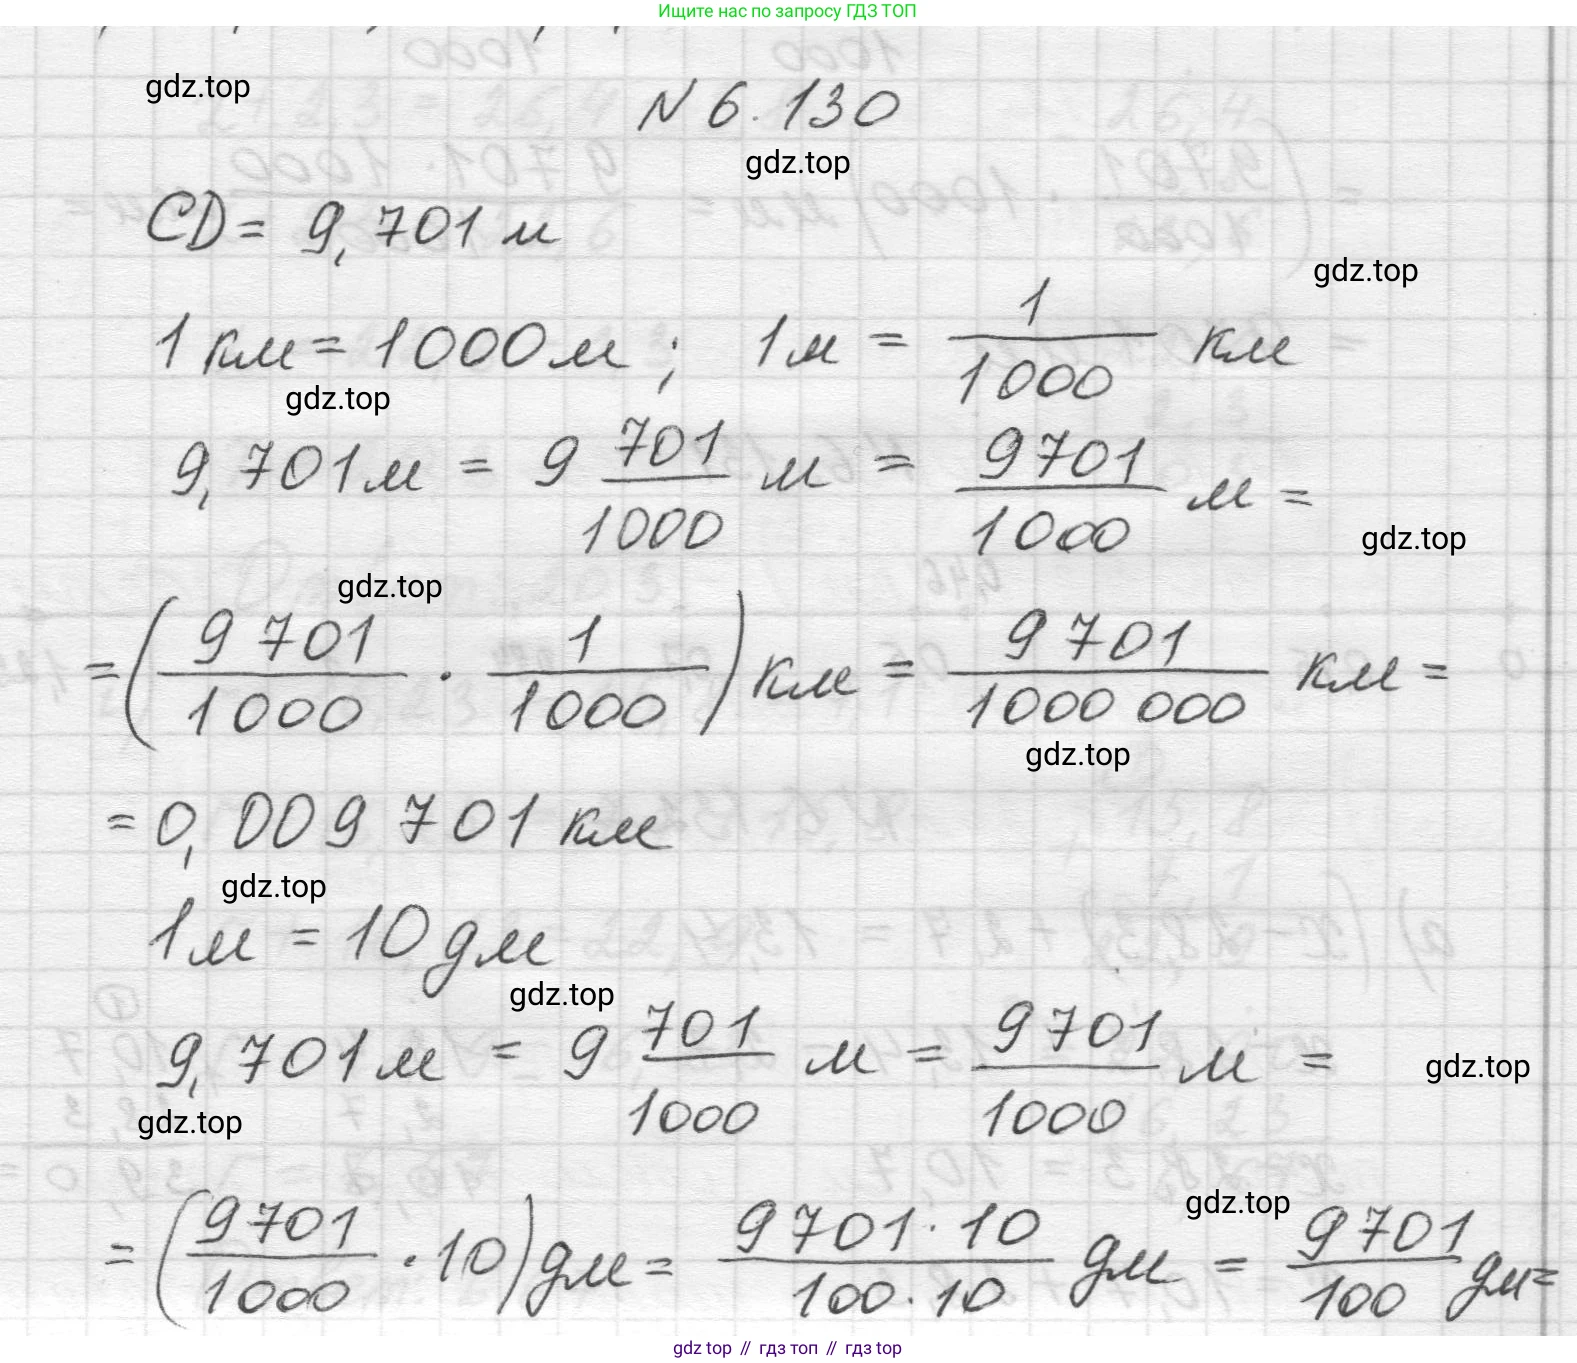 Ищите нас по запросу ГДЗ ТОП
gdz.top
N 6.130
gdz.top
CD = 9,701 м
gdz.top
1 км = 1000 м ; 1 м = 1/1000 км
gdz.top
9,701 м = 9 701/1000 м = 9701/1000 м =
gdz.top
gdz.top
= (9 701/1000 · 1/1000) км = 9 701/1000 000 км =
gdz.top
= 0,009 701 км
gdz.top
1 м = 10 дм
gdz.top
9,701 м = 9 701/1000 м = 9701/1000 м =
gdz.top
gdz.top
gdz.top
= (9701/1000 · 10) дм = 9701 · 10/100 · 10 дм = 9701/100 дм =
gdz.top // гдз топ // гдз top